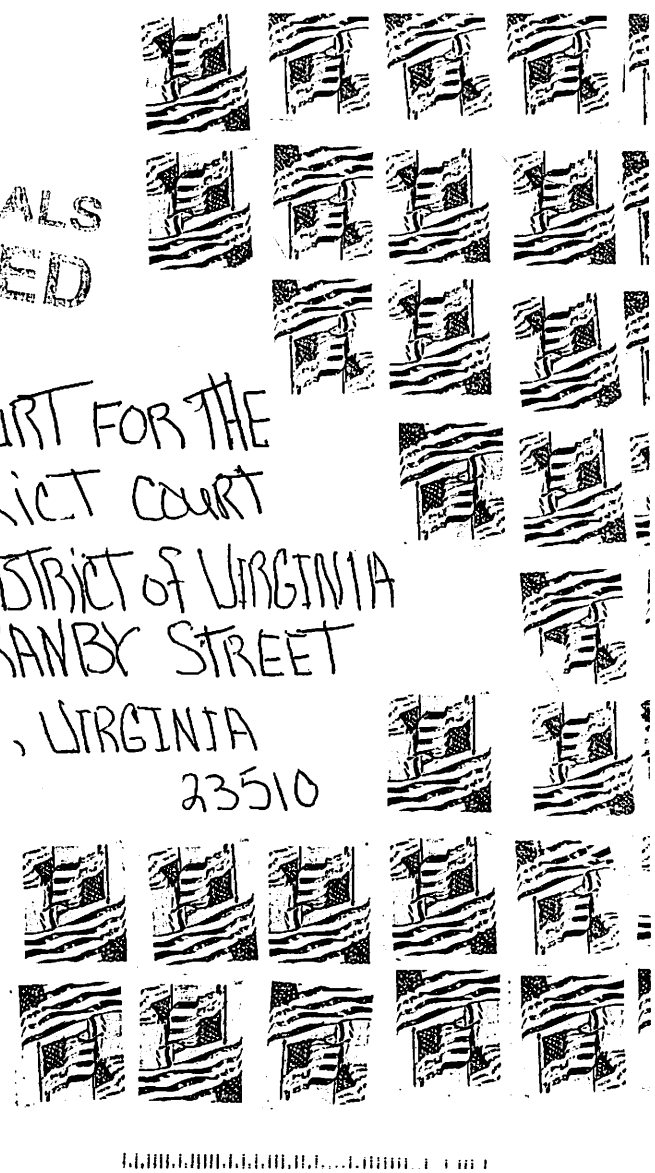 ALS
ED
URT FOR THE
RICT COURT
STRICT of VIRGINIA
RANBY STREET
, VIRGINIA
23510